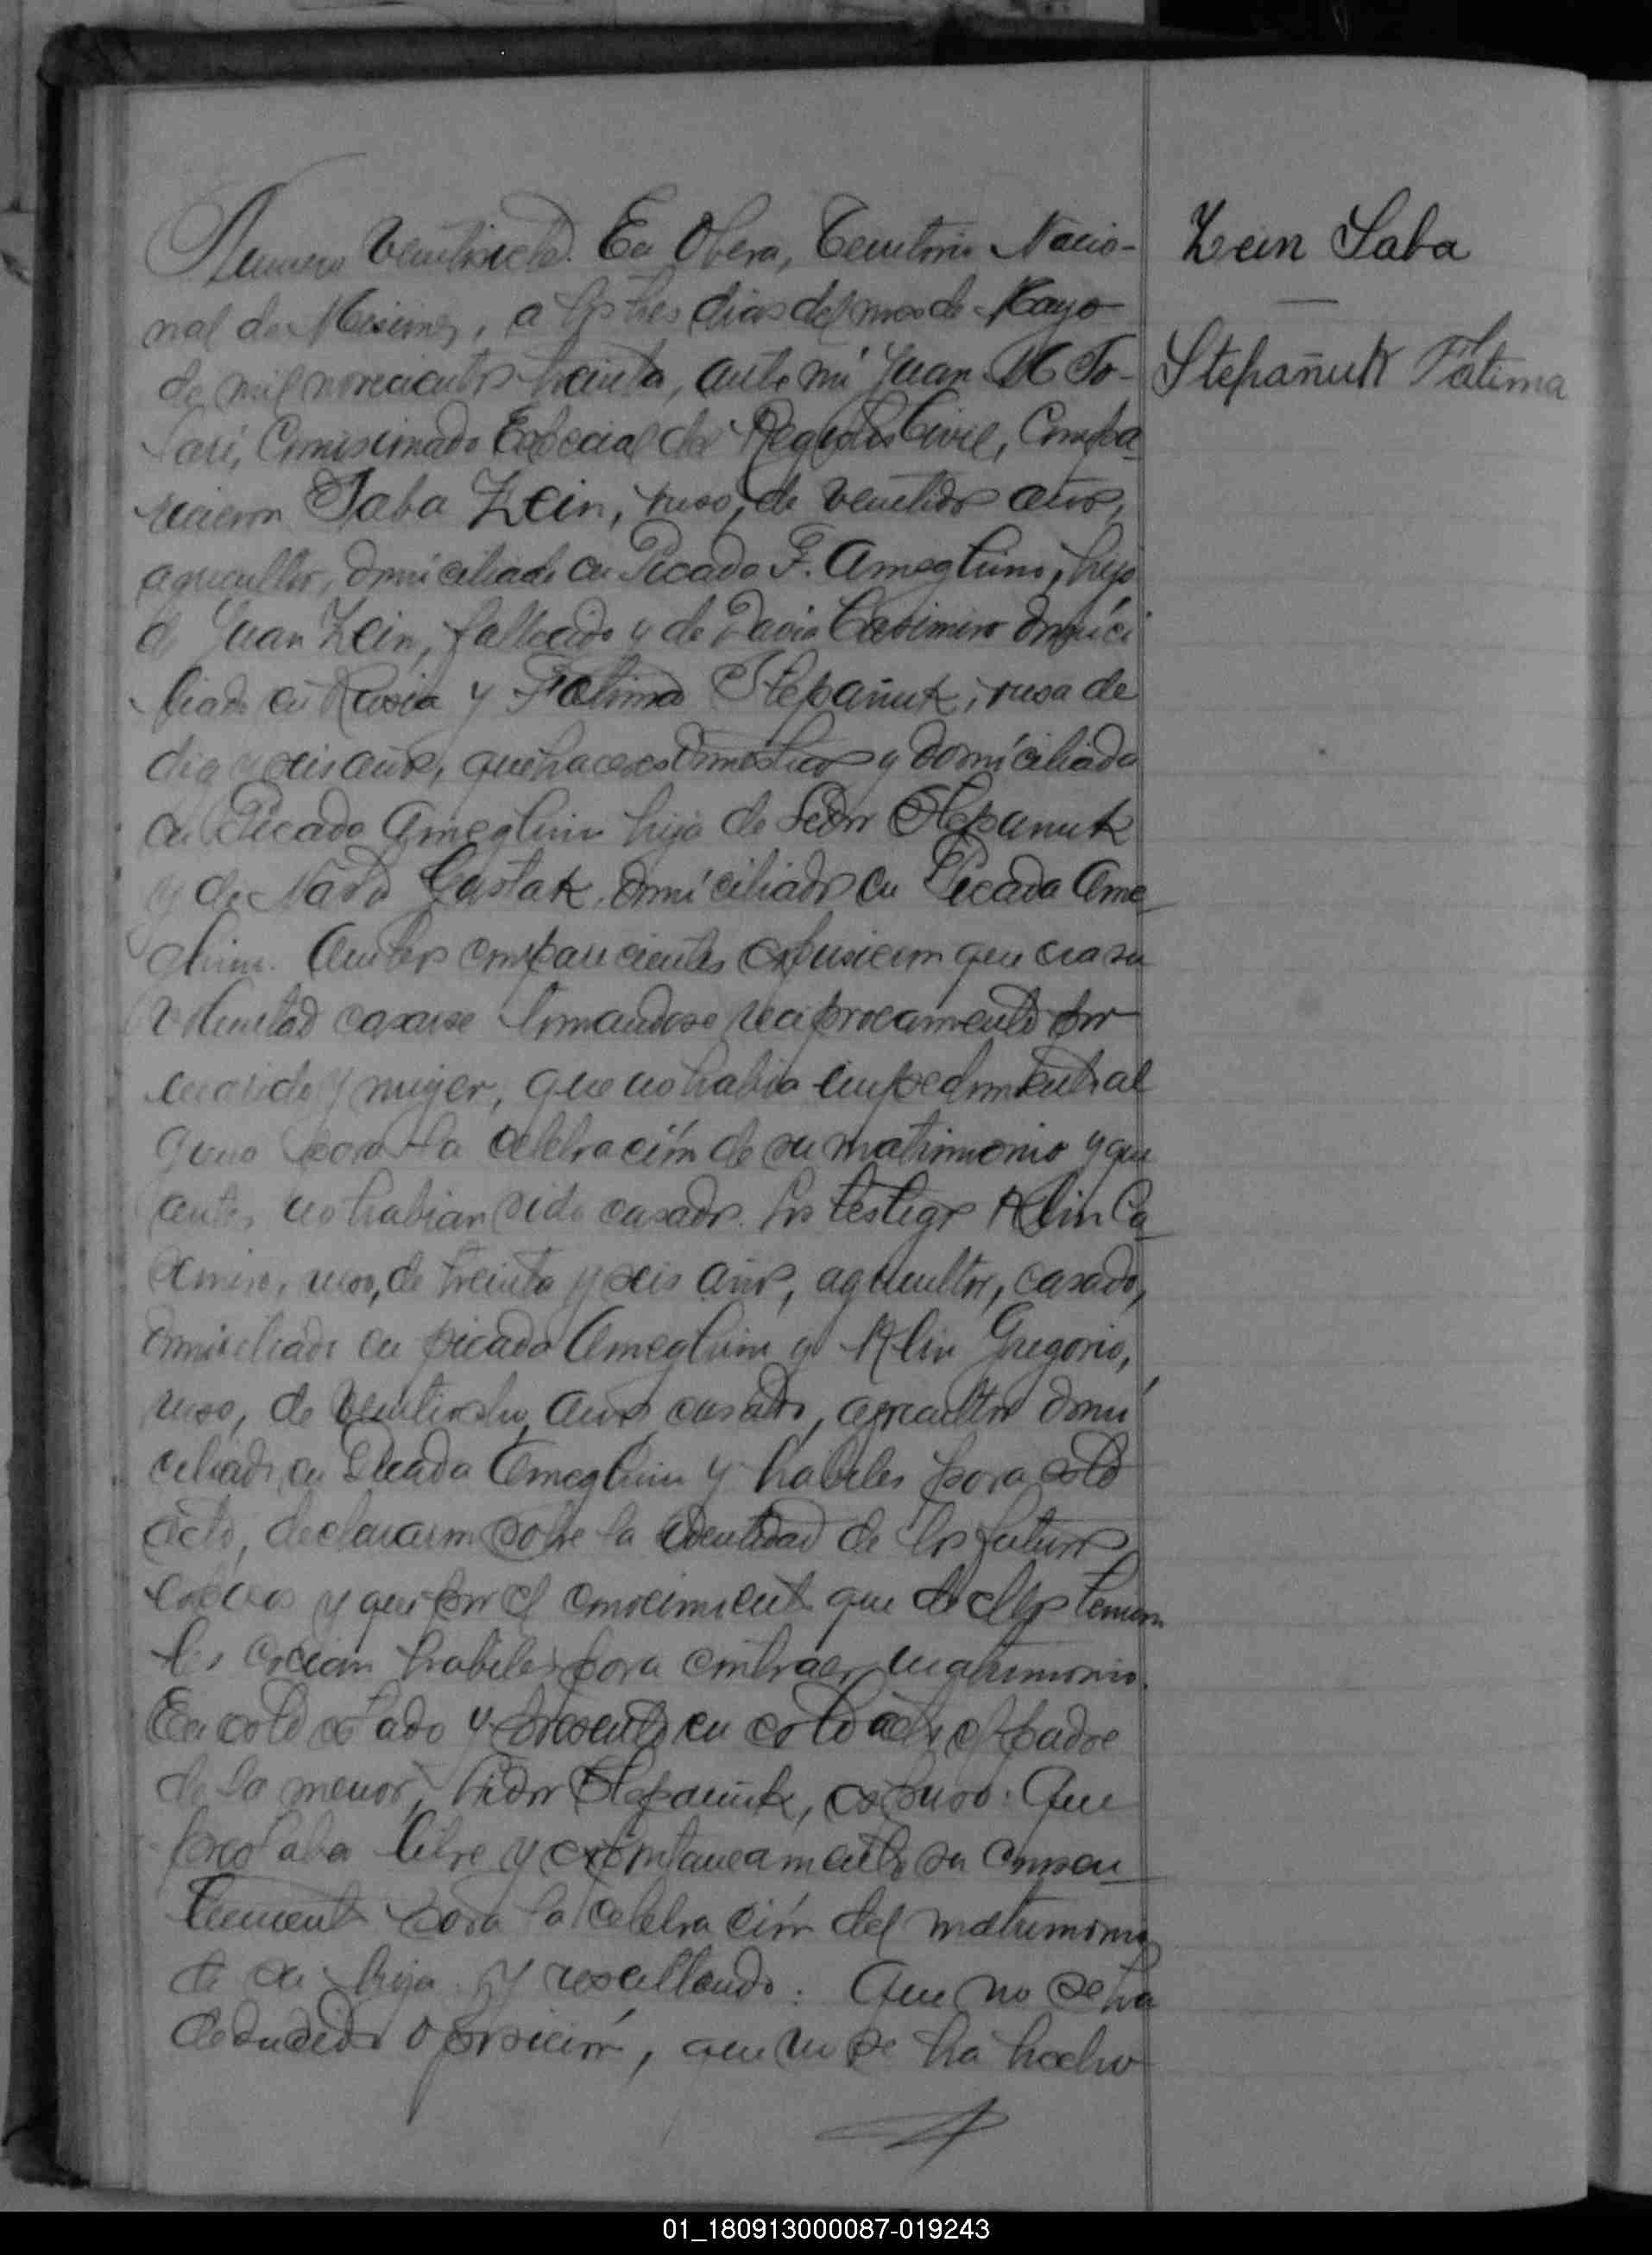 Numero veintisiete. En Obera, Territorio Nacio-
nal de Misiones, a los tres dias del mes de Mayo
de mil novecientos treinta, ante mi Juan M To-
Comisionado Especial del Registro Civil, Compa
recieron Saba Zein, ruso, de veintidos años,
agricultor, domiciliado en Picada F. Ameghino, hijo
de Juan Zein, fallecido y de Casimiro domici
liada en Rusia y Fatima Stepañuk, rusa de
diez y seis años, quehaceres domesticos y domiciliada
en Picada Ameghino hija de Stepanuk
y de domiciliados en Picada Ame
ghino. Ambos comparecientes expusieron que era su
voluntad casarse tomandose reciprocamente por
marido y mujer, que no habia impedimento al
guno para la celebración de su matrimonio y que
antes no habian sido casados. Los testigos Ca
simiro, ruso, de treinta y seis años, agricultor, casado,
domiciliado en picada Ameghino y Gregorio,
ruso, de veintiocho años casado, agricultor domi
ciliado en Picada Ameghino y habiles para este
acto, declararon sobre la identidad de los futuros
esposos y que por el conocimiento que de ellos tenian
los creian habiles para contraer matrimonio.
En este estado y presente en este acto el padre
de la menor, Stepañuk, expuso: Que
prestaba libre y espontaneamente su consen
timiento para la celebración del matrimonio
de su hija. Y resultando: Que no se ha
deducido oposición, que no se ha hecho
Zein Saba
Stepañuk Fatima
01_180913000087-019243